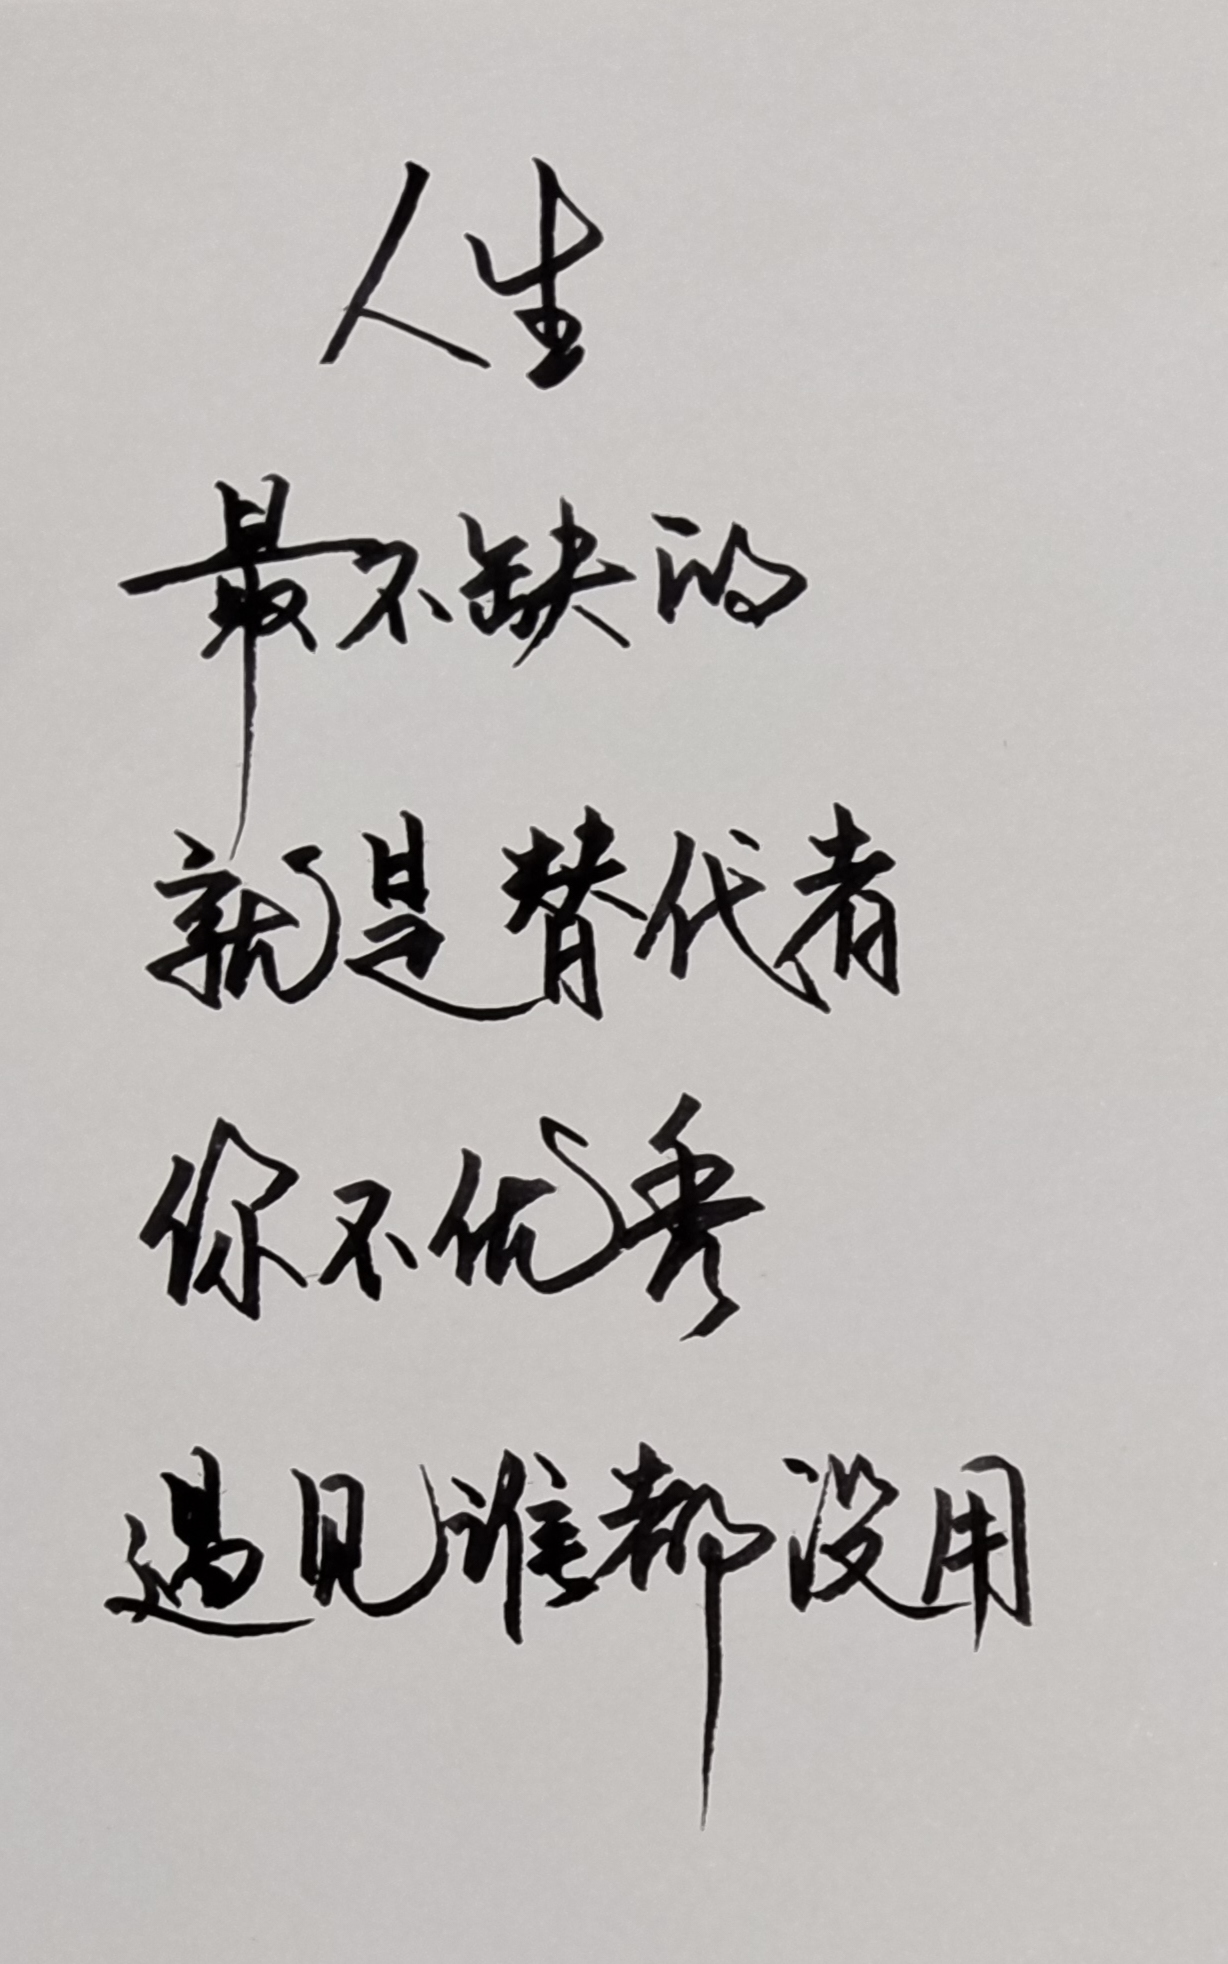 人生
最不缺的
就是替代者
你不优秀
遇见谁都没用